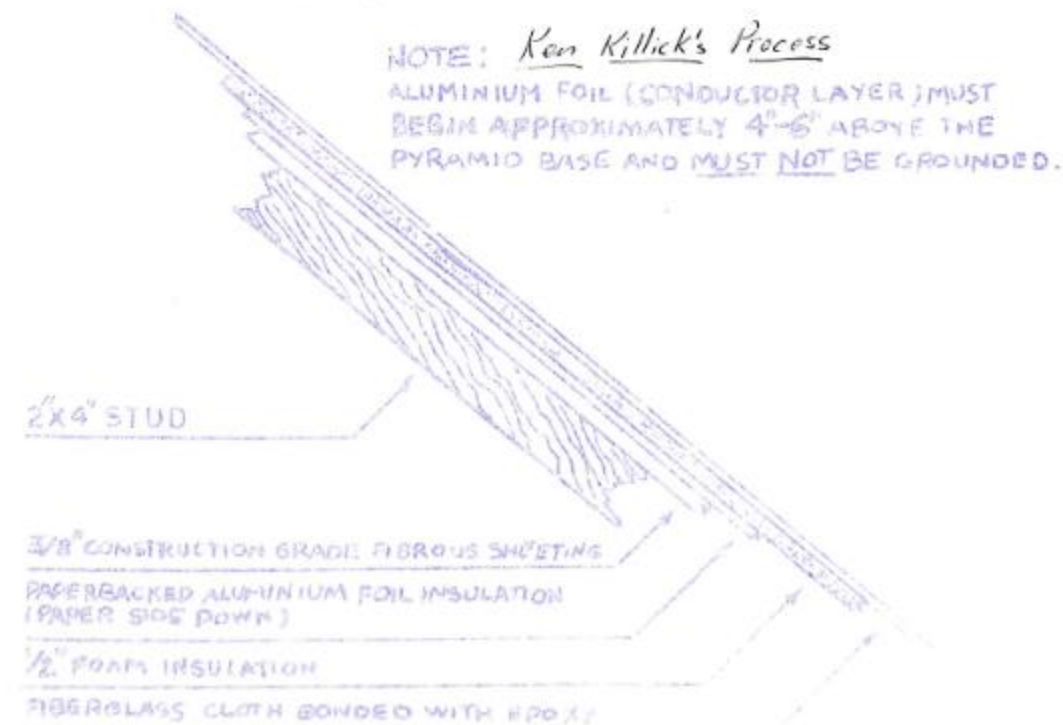 NOTE: Ken Killick's Process
ALUMINIUM FOIL (CONDUCTOR LAYER) MUST
BEGIN APPROXIMATELY 4"-6" ABOVE THE
PYRAMID BASE AND MUST NOT BE GROUNDED.
2"X4" STUD
3/8" CONSTRUCTION GRADE FIBROUS SHEETING
PAPERBACKED ALUMINIUM FOIL INSULATION
(PAPER SIDE DOWN)
1/2" FOAM INSULATION
FIBERGLASS CLOTH BONDED WITH EPOXY